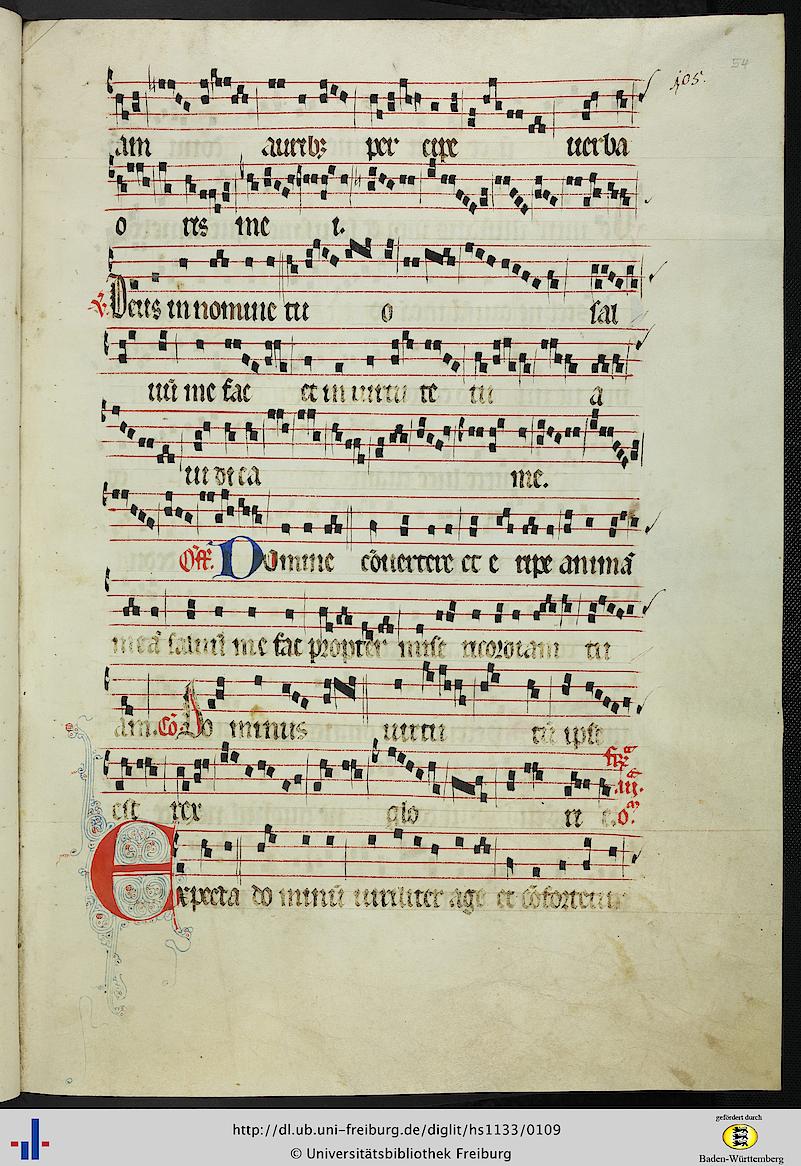 54
105.
am auribꝫ per cipe uerba
o ris me i.
℟. Deus in nomine tu o sal
uū me fac et in uirtu te tu a
iu di ca me.
Off. Domine cōuertere et e ripe animā
meā saluū me fac propter mise ricordiam tu
am. Cō. Do minus uirtu tū ipse
est rex glo ri e.
Expecta do minū uiriliter age et cōfortetur
http://dl.ub.uni-freiburg.de/diglit/hs1133/0109
© Universitätsbibliothek Freiburg
gefördert durch
Baden-Württemberg